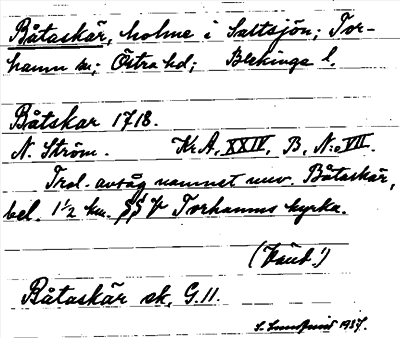 Båtaskär, holme i Saltsjön; Tor-
hamn sn; Östra hd; Blekinge l.
Båtskar 1718.
N. Ström. Kr.A, XXIV, B, N:o VII.
Trol. avsåg namnet nuv. Båtaskär,
bel. 1 1/2 km. SSV Torhamns kyrka.
Båtaskär sk, G.11.
1937.